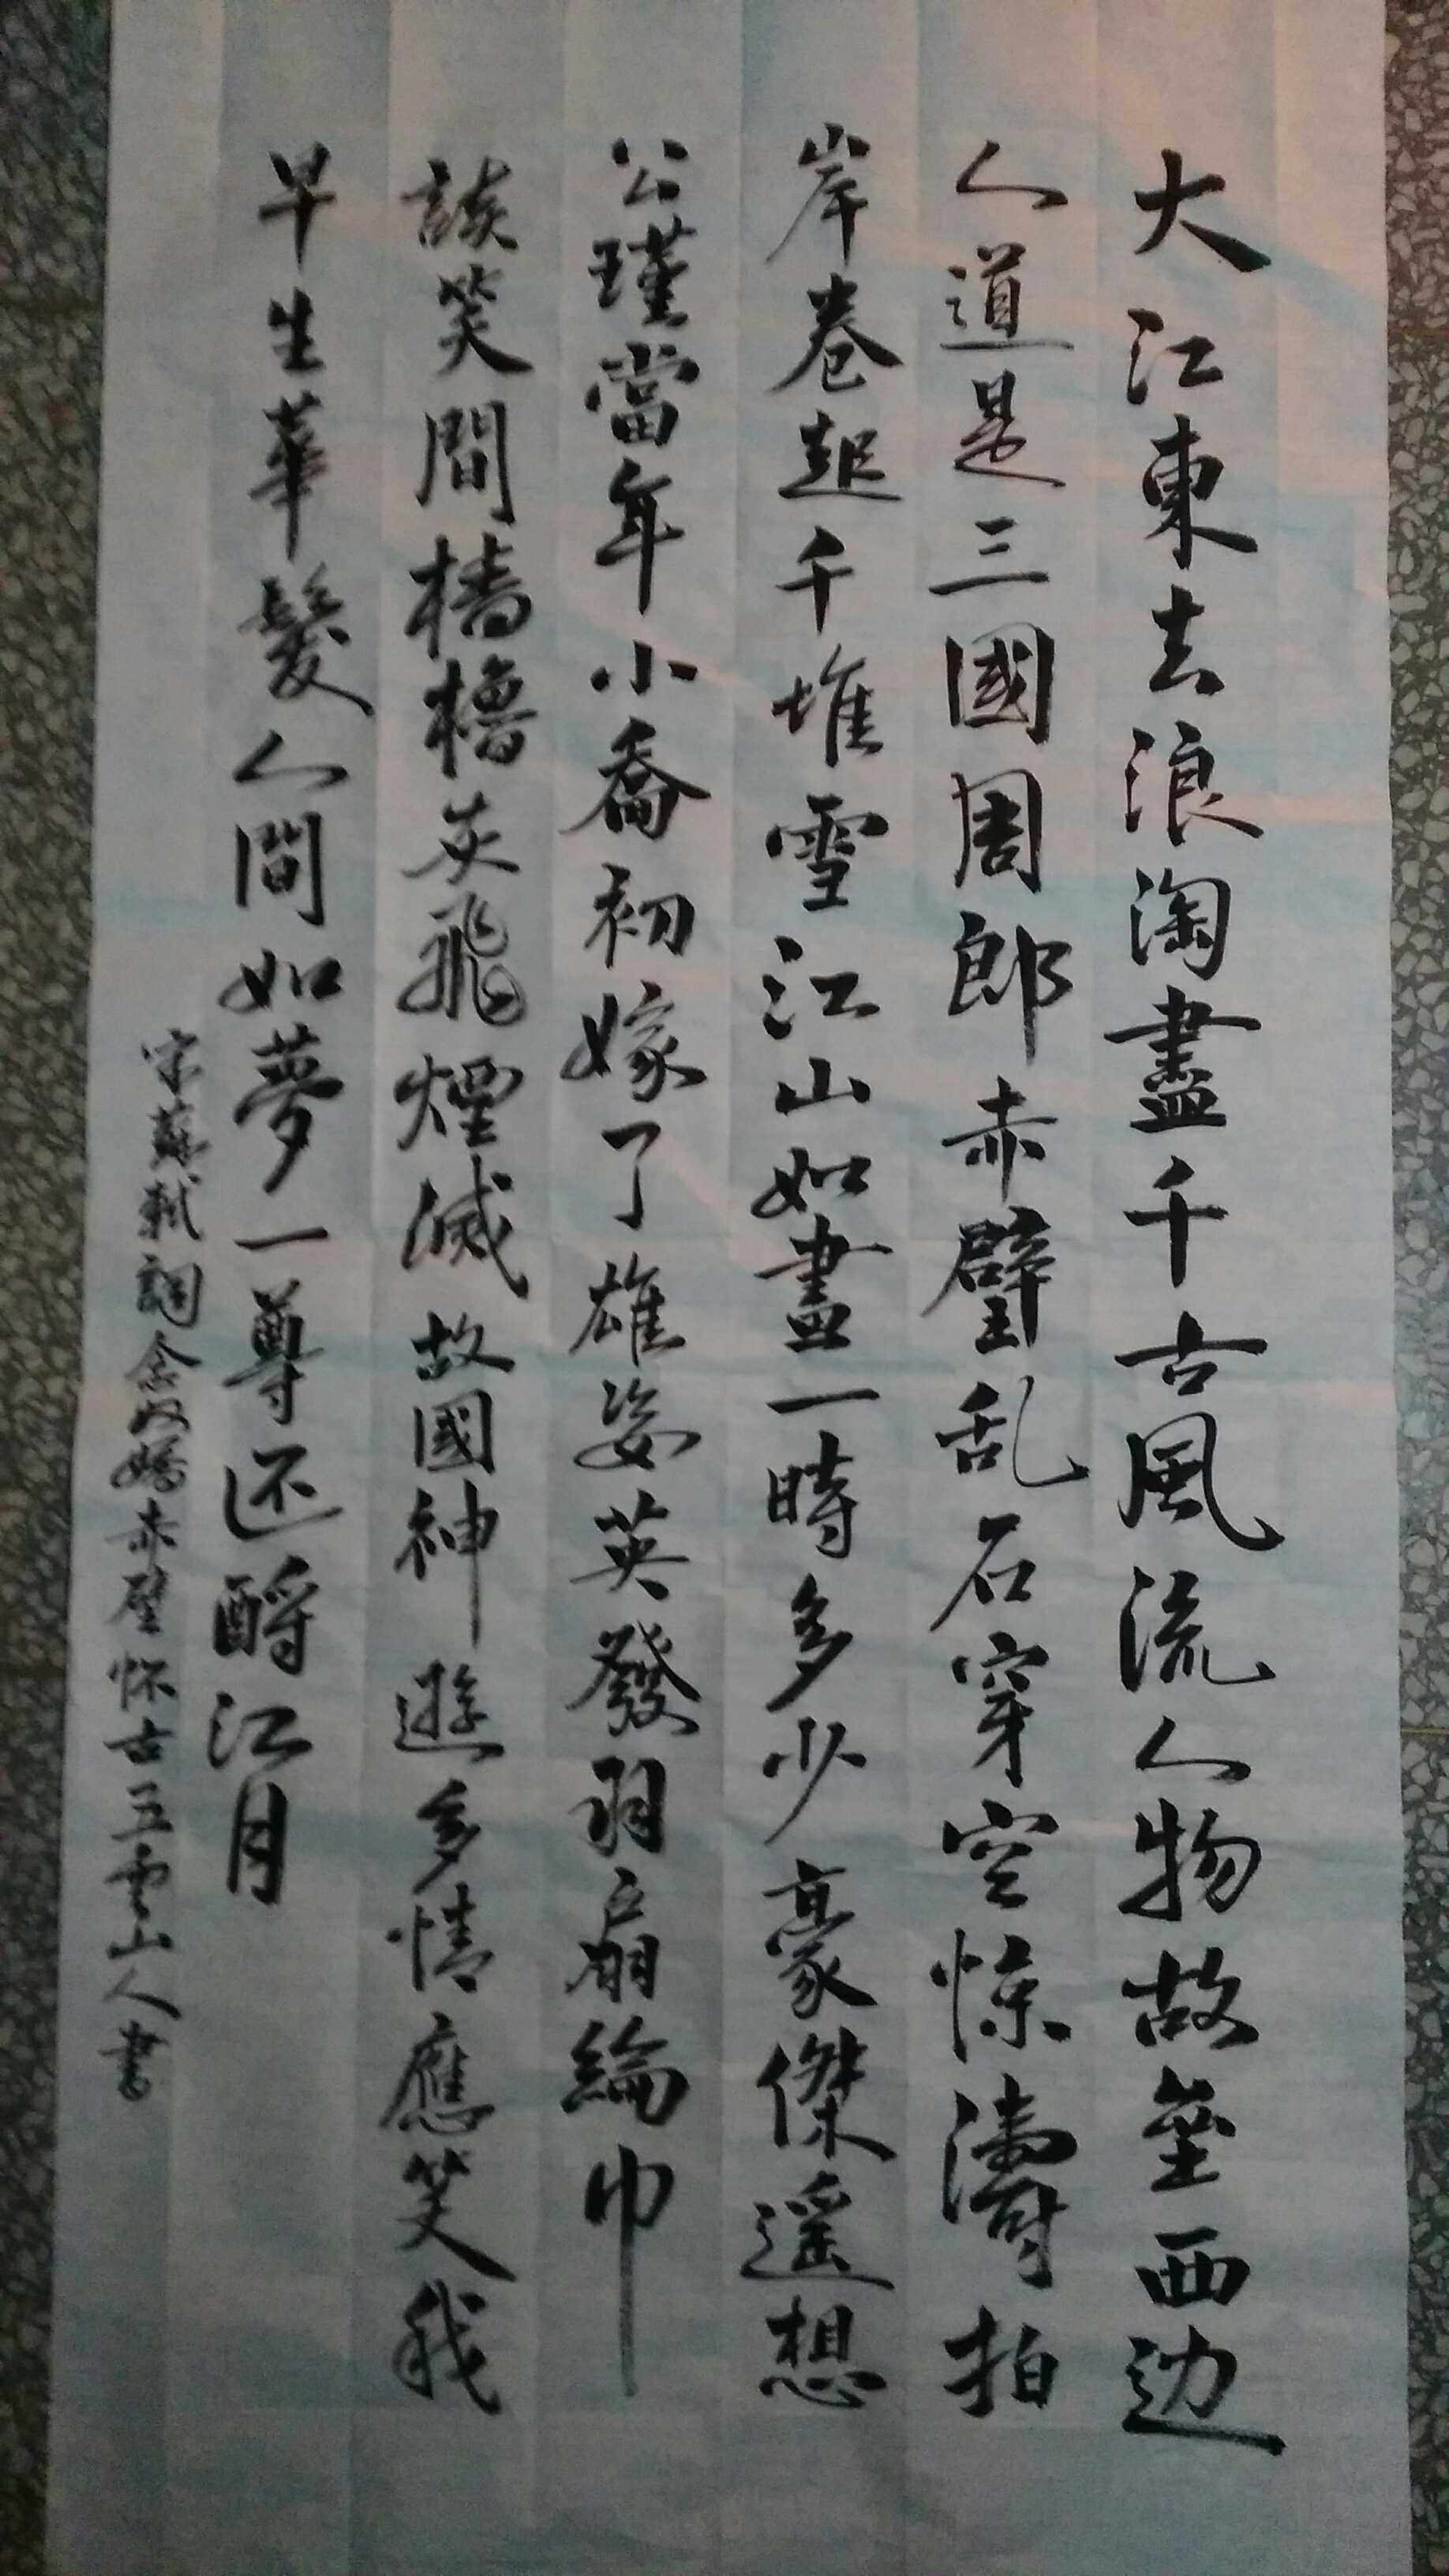 大江東去浪淘盡千古風流人物故壘西边
人道是三國周郎赤壁乱石穿空惊濤拍
岸卷起千堆雪江山如畫一時多少豪傑遥想
公瑾當年小喬初嫁了雄姿英發羽扇綸巾
談笑間檣櫓灰飛煙滅故國神遊多情應笑我
早生華髮人間如夢一尊还酹江月
宋蘇軾詞念奴嬌赤壁怀古五雲山人書